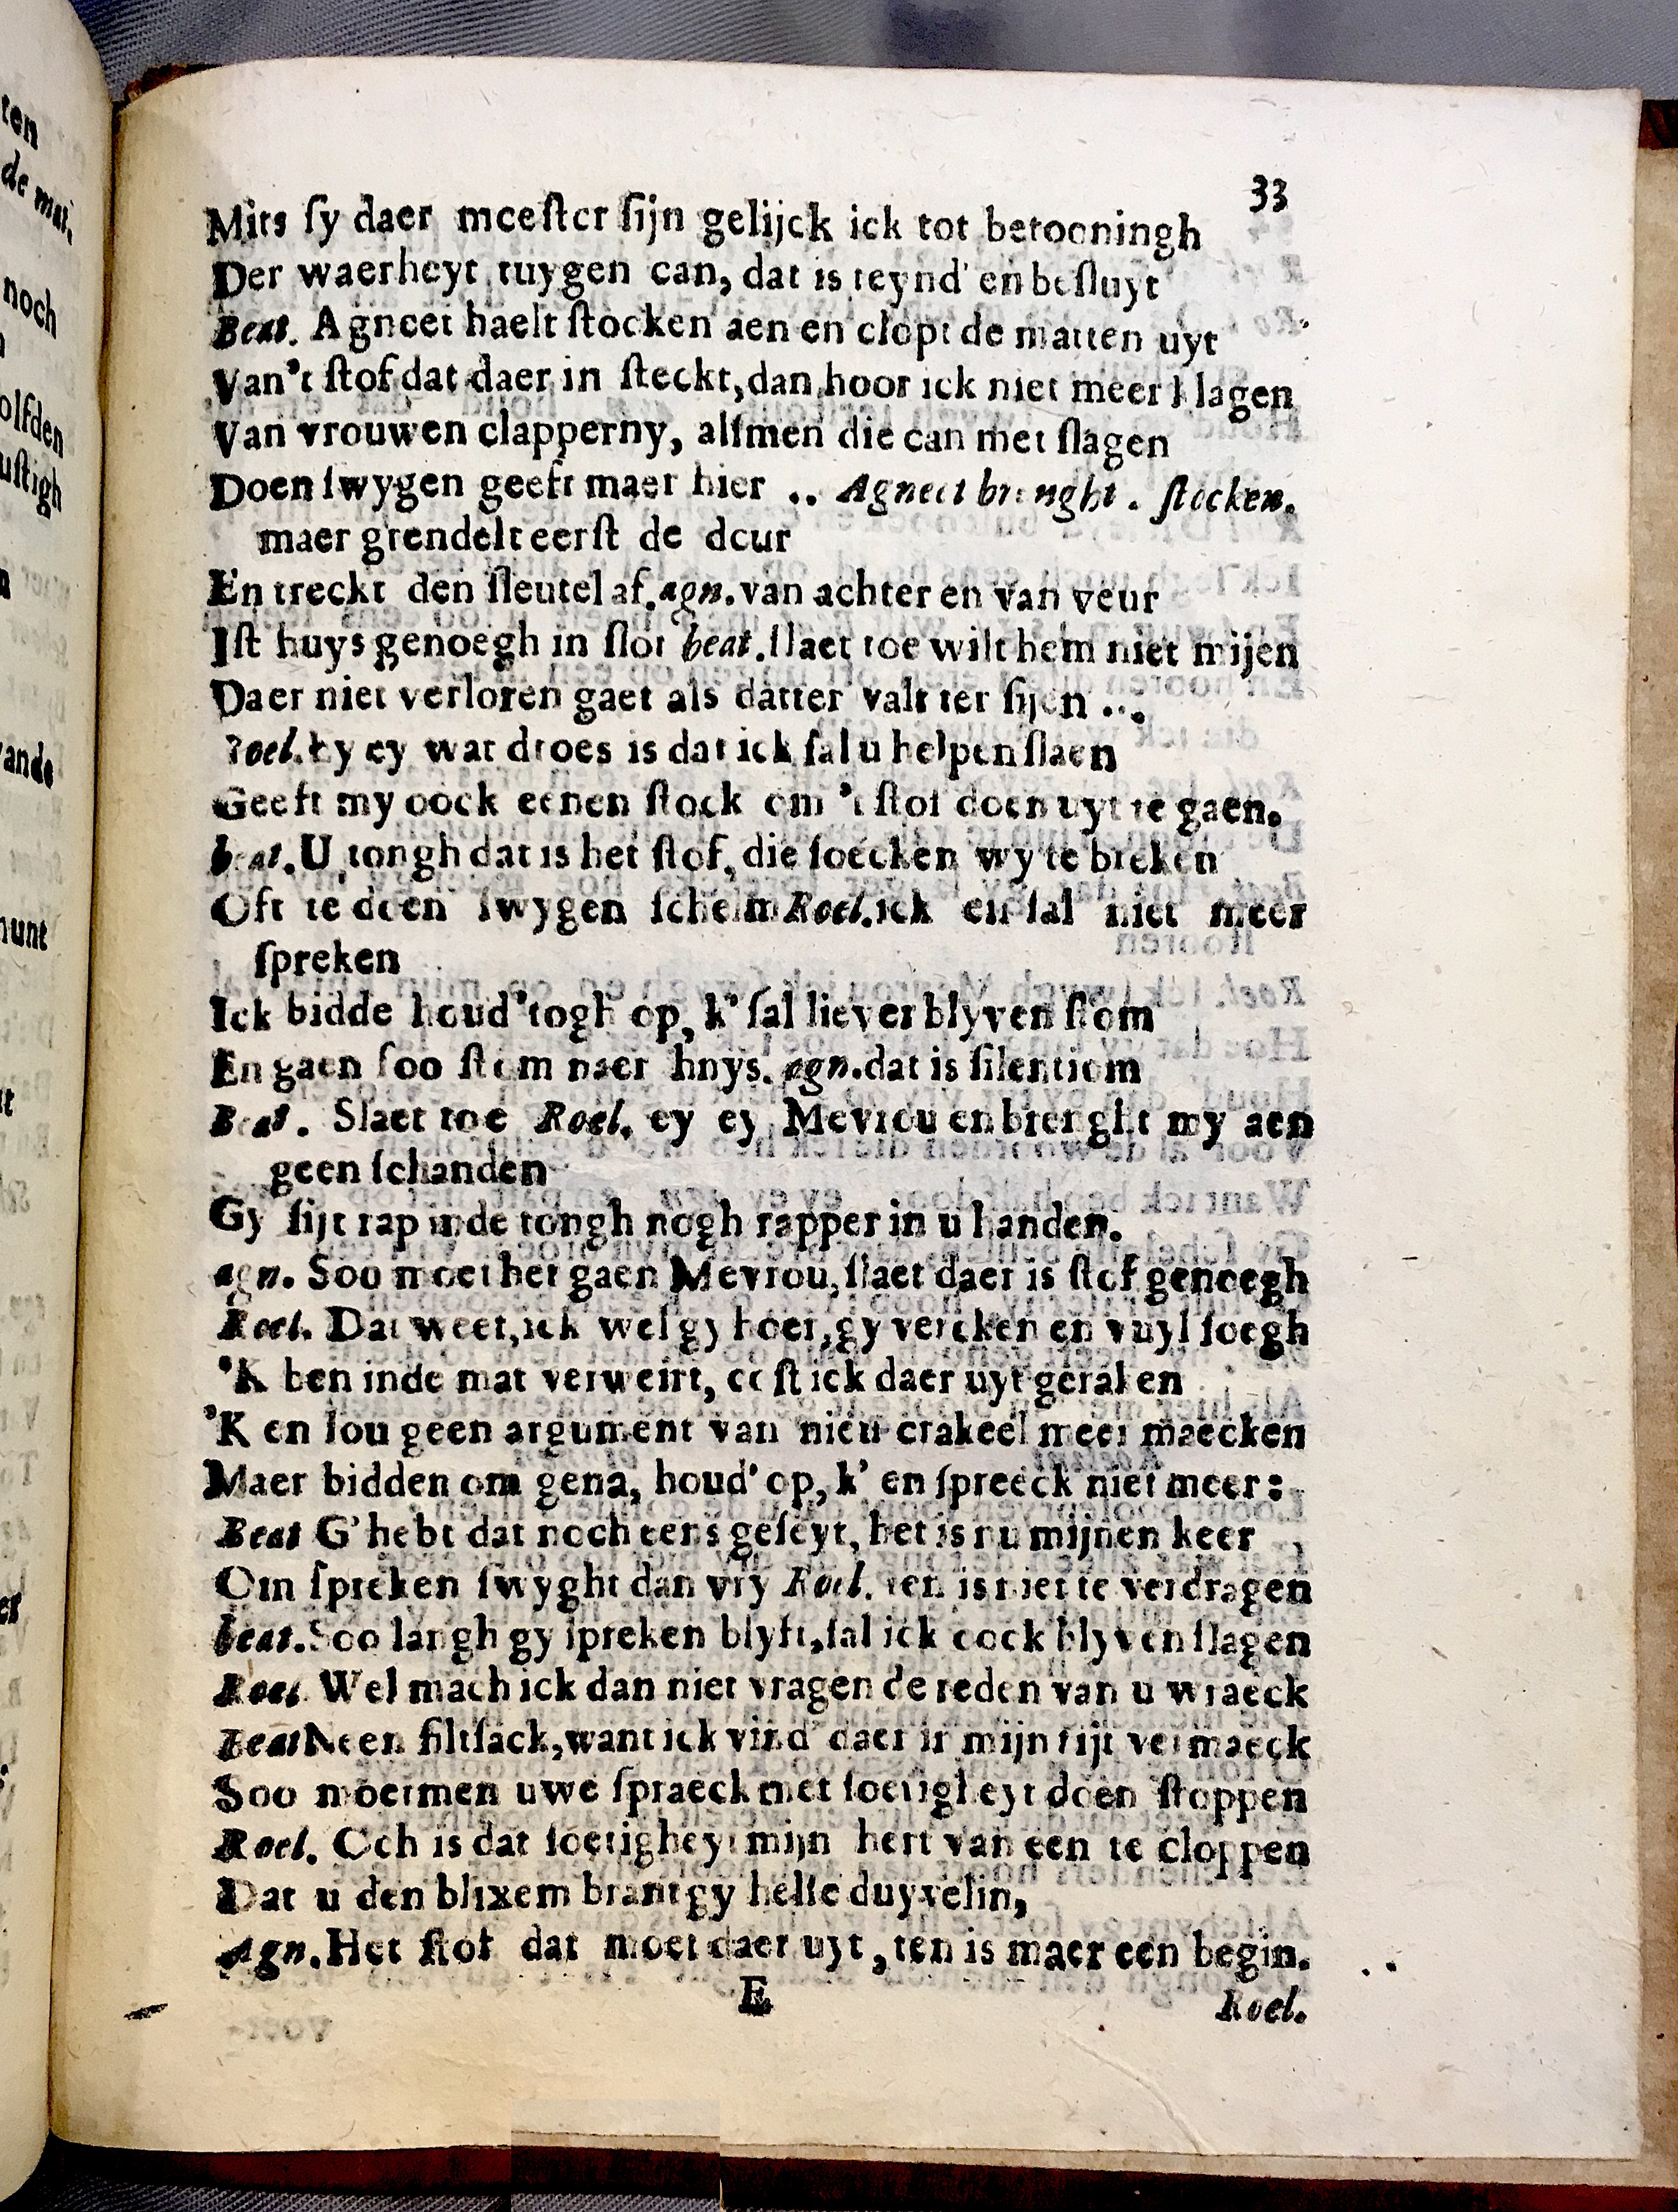 33
Mits ſy daer meeſter ſijn gelijck ick tot betooningh
Der waerheyt tuygen can, dat is teynd' en beſluyt
Beat. Agneet haelt ſtocken aen en clopt de matten uyt
Van't ſtof dat daer in ſteckt, dan hoor ick niet meer klagen
Van vrouwen clapperny, alſmen die can met ſlagen
Doen ſwygen geeft maer hier .. Agneet brenght . ſtocken.
maer grendelt eerſt de deur
En treckt den ſleutel af. agn. van achter en van veur
Iſt huys genoegh in ſlot beat. ſlaet toe wilt hem niet mijen
Daer niet verloren gaet als datter valt ter ſijen ...
Roel. Ey ey wat droes is dat ick ſal u helpen ſlaen
Geeft my oock eenen ſtock om 't ſtof doen uyt te gaen.
beat. U tongh dat is het ſtof, die ſoecken wy te breken
Oft te doen ſwygen ſchelm Roel. ick en ſal niet meer
ſpreken
Ick bidde houd' togh op, k' ſal liever blyven ſtom
En gaen ſoo ſtom naer hnys. agn. dat is ſilentiom
Beat. Slaet toe Roel. ey ey Mevrou en brenght my aen
geen ſchanden
Gy ſijt rap inde tongh nogh rapper in u handen.
agn. Soo moet het gaen Mevrou, ſlaet daer is ſtof genoegh
Roel. Dat weet, ick wel gy hoer, gy vercken en vuyl ſoegh
'K ben inde mat verweirt, coſt ick daer uyt geraken
'K en ſou geen argument van nieu crakeel meer maecken
Maer bidden om gena, houd' op, k' en ſpreeck niet meer:
Beat G' hebt dat noch eens geſeyt, het is nu mijnen keer
Om ſpreken ſwyght dan vry Roel. ten is niet te verdragen
beat. Soo langh gy ſpreken blyft, ſal ick oock blyven ſlagen
Roel Wel mach ick dan niet vragen de reden van u wraeck
Beat Neen filtſack, want ick vind' daer in mijn tijt vermaeck
Soo moetmen uwe ſpraeck met ſoetigheyt doen ſtoppen
Roel. Och is dat ſoetigheyt mijn hert van een te cloppen
Dat u den blixem brant gy helle duyvelin,
Agn. Het ſtof dat moet daer uyt, ten is maer een begin.
E
Roel.
ten
de mat.
noch
olfden
uſtigh
ande
unt